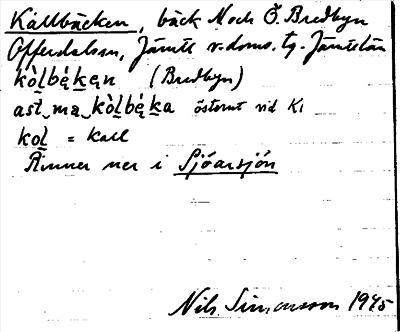 Kallbäcken, bäck N och Ö. Bredbyn
Offerdalssn, Jämtl v. doms. tg. Jämtslän
kòlbékẹn (Bredbyn)
ast ma kòlbéka österut vid
kol = kall
Rinner ner i Sjöarsjön
Nils Simonsson 1945